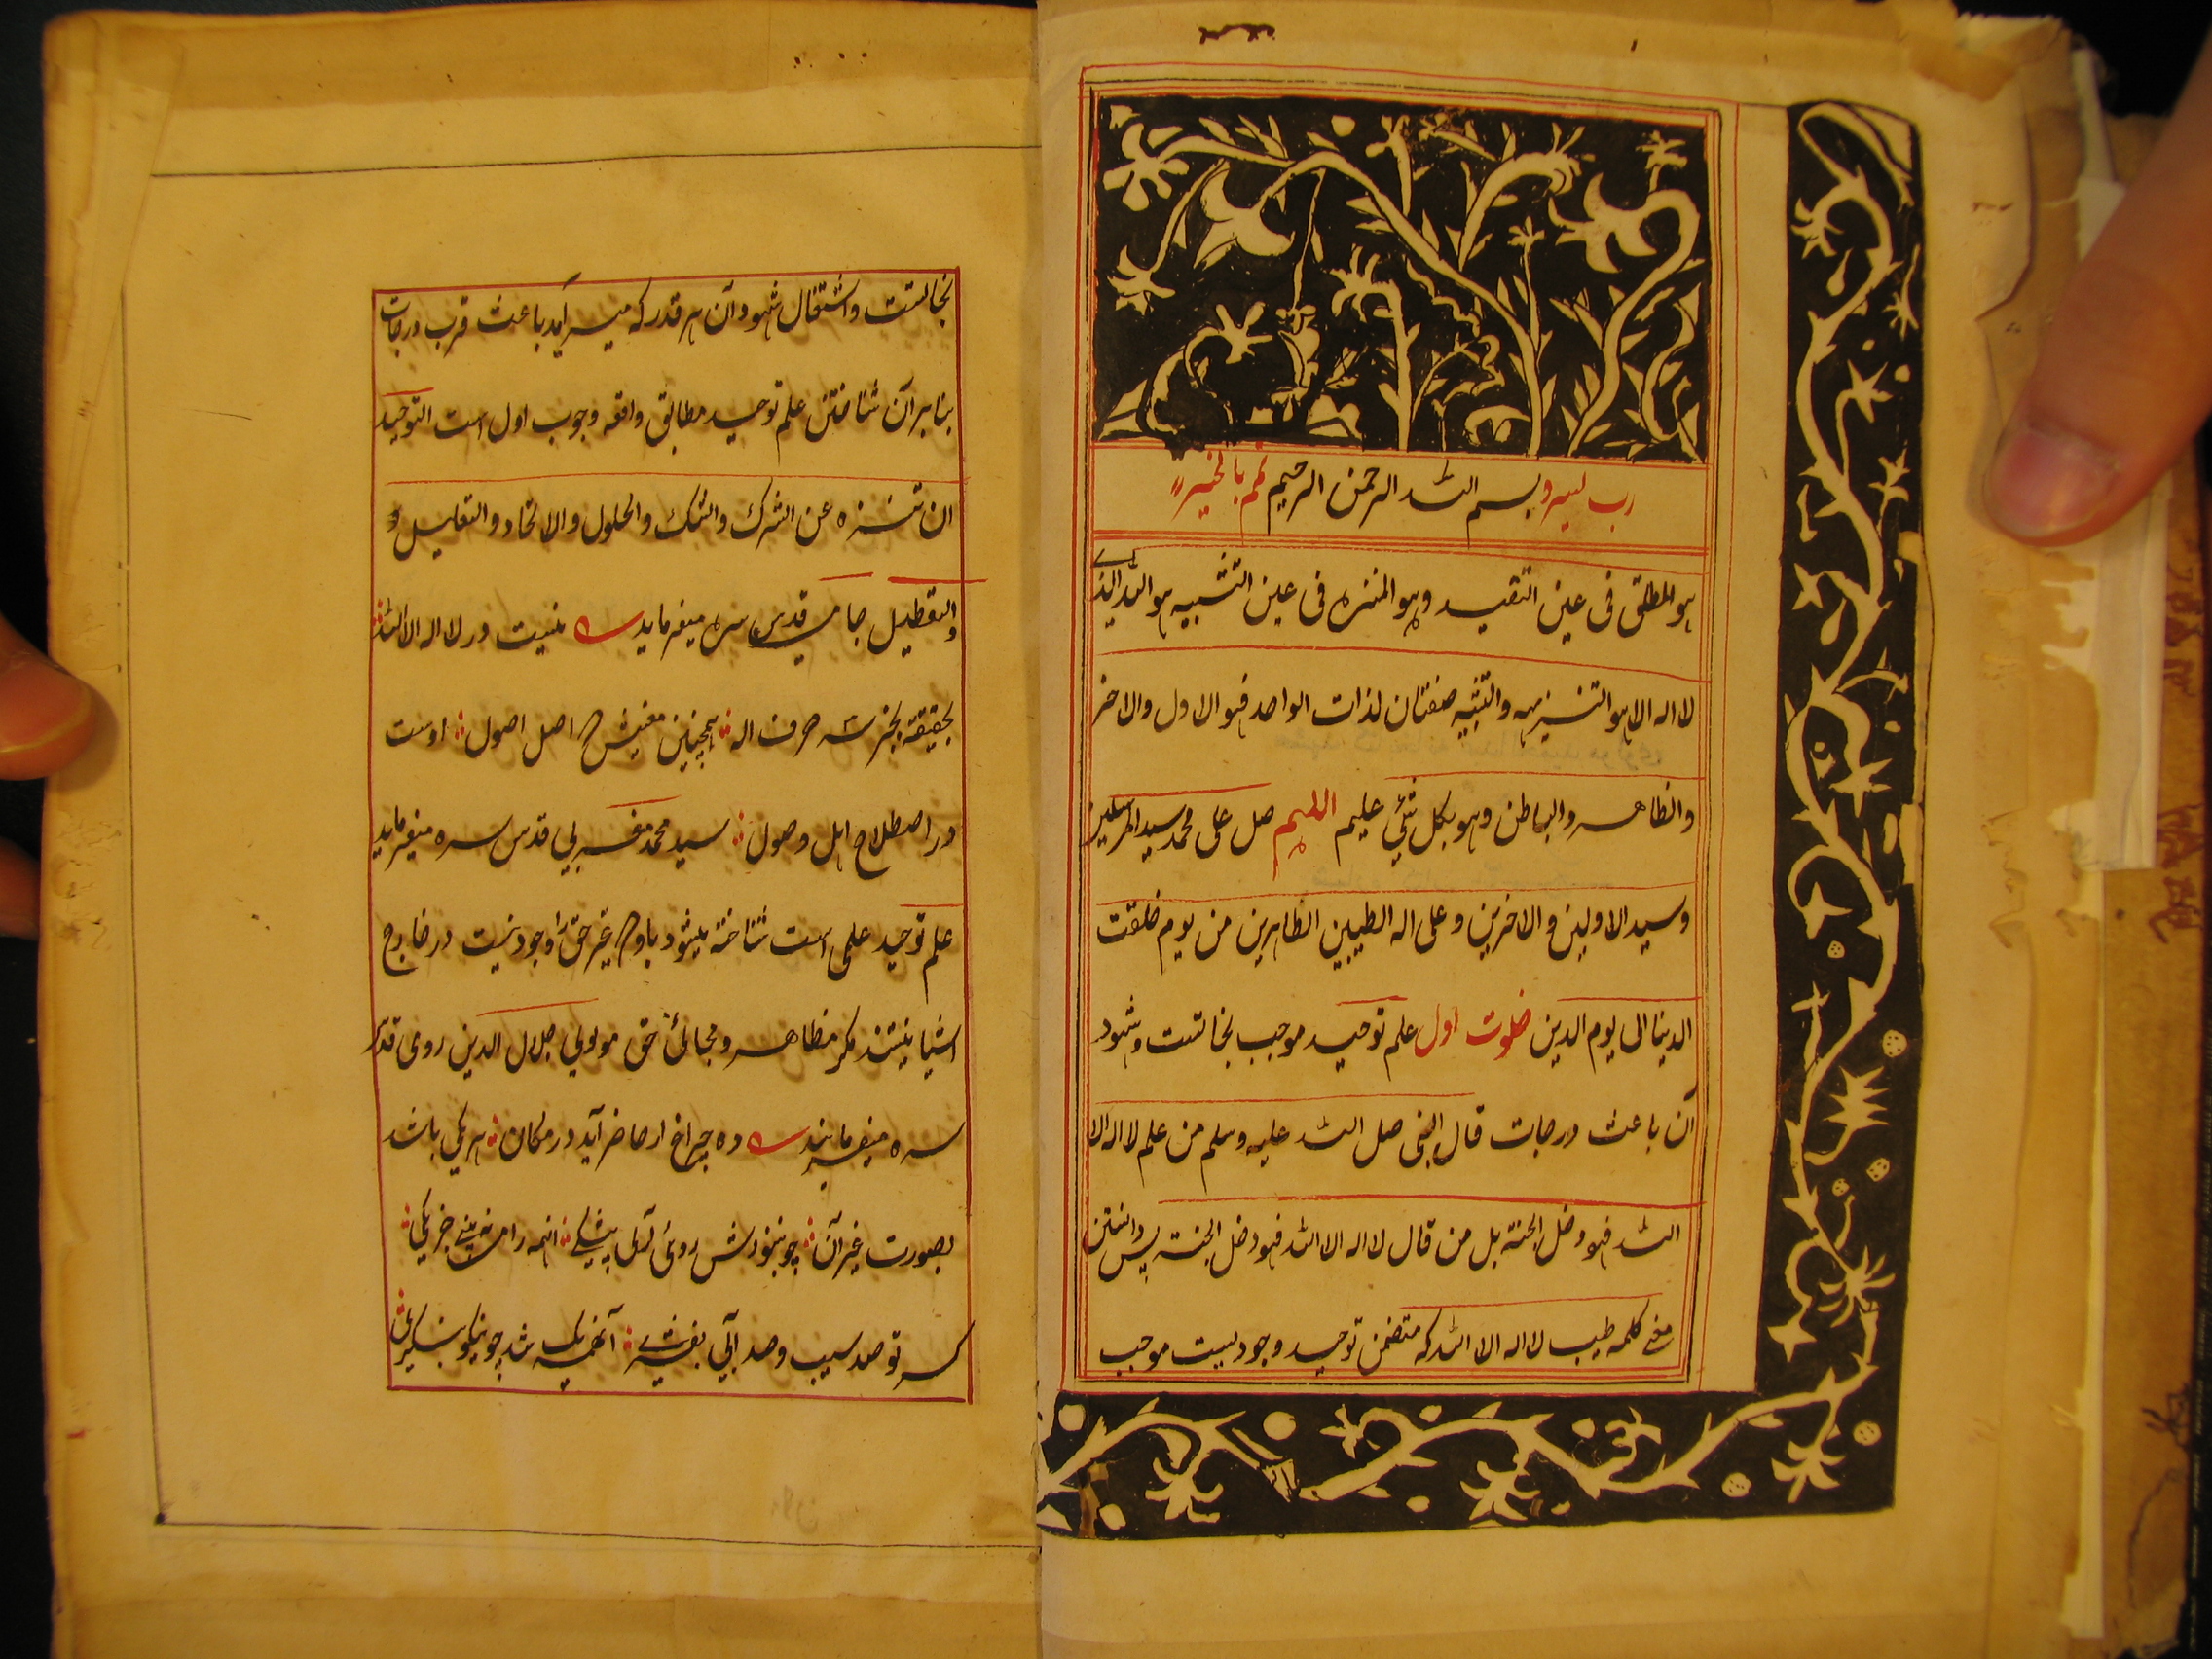 رب یسر و بسم الله الرحمن الرحیم تمم بالخیر
هو المطلق فی عین التقید وهو المنزه فی عین التشبیه هو الله الذی
لا اله الا هو التنزیهه والتشبیه صفتان لذات الواحد فهو الاول والاخر
والظاهر والباطن وهو بکل شئی علیم اللهم صل علی محمد سید المرسلین
وسید الاولین و الاخرین وعلی اله الطیبین الطاهرین من یوم خلقت
الدنیا الی یوم الدین خلوت اول علم توحید موجب نجاتست و شهود
آن باعث درجات قال النبی صل الله علیه وسلم من علم لا اله الا
الله فهو دخل الجنة بل من قال لا اله الا الله فهو دخل الجنة پس دانستن
معنے کلمه طیب لا اله الا الله که متضمن توحید وجودیست موجب
نجاتست و اشتغال شهود آن هر قدر که میسر آید باعث قرب درجات
بنابر آن شناختن علم توحید مطابق واقعه وجوب اول است التوحید
ان تنزه عن الشرک والشک والحلول والاتحاد والتعلیل و
والتعطیل جامی قدس سره میفرماید نیست در لا اله الا الله
بحقیقة بجز سه حرف اله همچنین معنیش اصل اصول اوست
در اصطلاح اهل وصول سید محمد مغربی قدس سره میفرماید
علم توحید علمی است شناخته میشود باو که غیر حق را وجود نیست در خارج
اشیا نیستند مگر مظاهر و مجالئ حق مولوی جلال الدین رومی قدس
سره میفرمایند ده چراغ ار حاضر آید در مکان هر یکی باشد
بصورت غیر آن چو بنورش روی آری بیشکے
کر تو صد سیب و صد آبی بفشرے